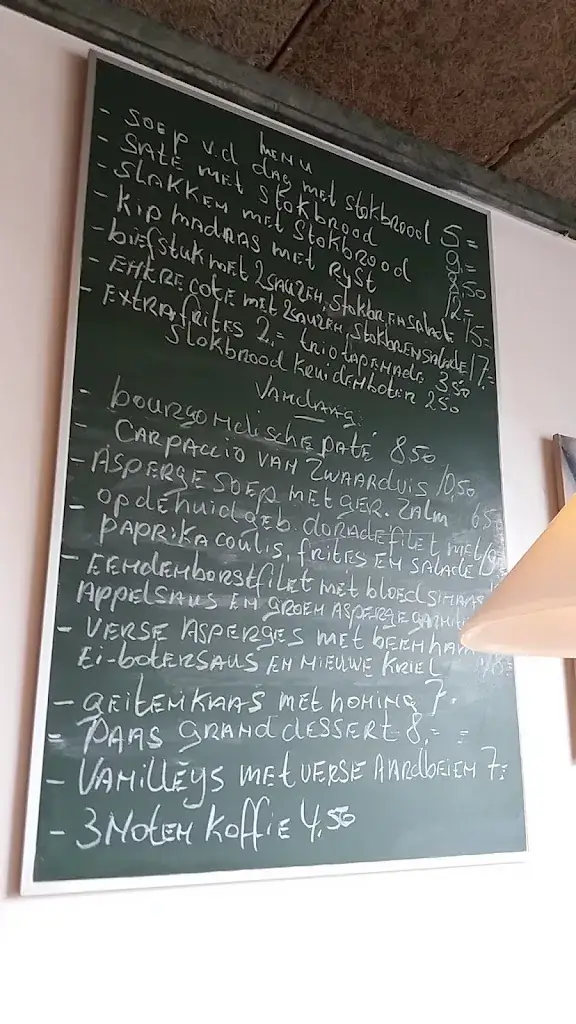 MENU
- SOEP v.d dag met stokbrood 5=
- SATE met stokbrood 9=
- SLAKKEN met stokbrood 8,50
- kip madras met Ryst 12=
- biefstuk met 2 sauzen, stokbr en salade 15=
- ENtRECOtE met 2 sauzen, stokbr en salade 17=
- EXtRA fRites 2,= trio tapenade 3,50
stokbrood kruidenboter 2,50
VANdaag:
- bourgondische paté 8,50
- CARPACCIO VAN ZWAARdvis 10,50
- ASPERGE SOEP met ger. zalm 6,5
- op de huid geb. dorade filet met
paprika coulis, frites EN SALAdE
- EENdENborstfilet met bloedsinaas
APPELSAUS EN groen ASPERGE
- VERSE ASPERGES met beenham
Ei-botERSAUS EN NIEUWE KRIEL
- geitenkaas met honing 7.
- PAAS GRANd dESSERt 8,=
- VANilleys met verse AARdbeien 7=
- 3 Noten koffie 4,50